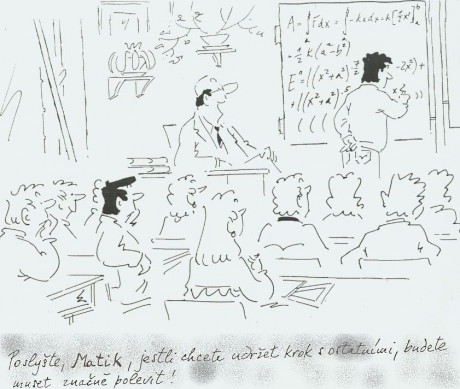 A = ∫ F dx = ∫ -kx dx = k[½x²]ₐᵇ
= ½ k(a²-b²)
Poslyšte, Matik, jestli chcete udržet krok s ostatními, budete
muset značně polevit!